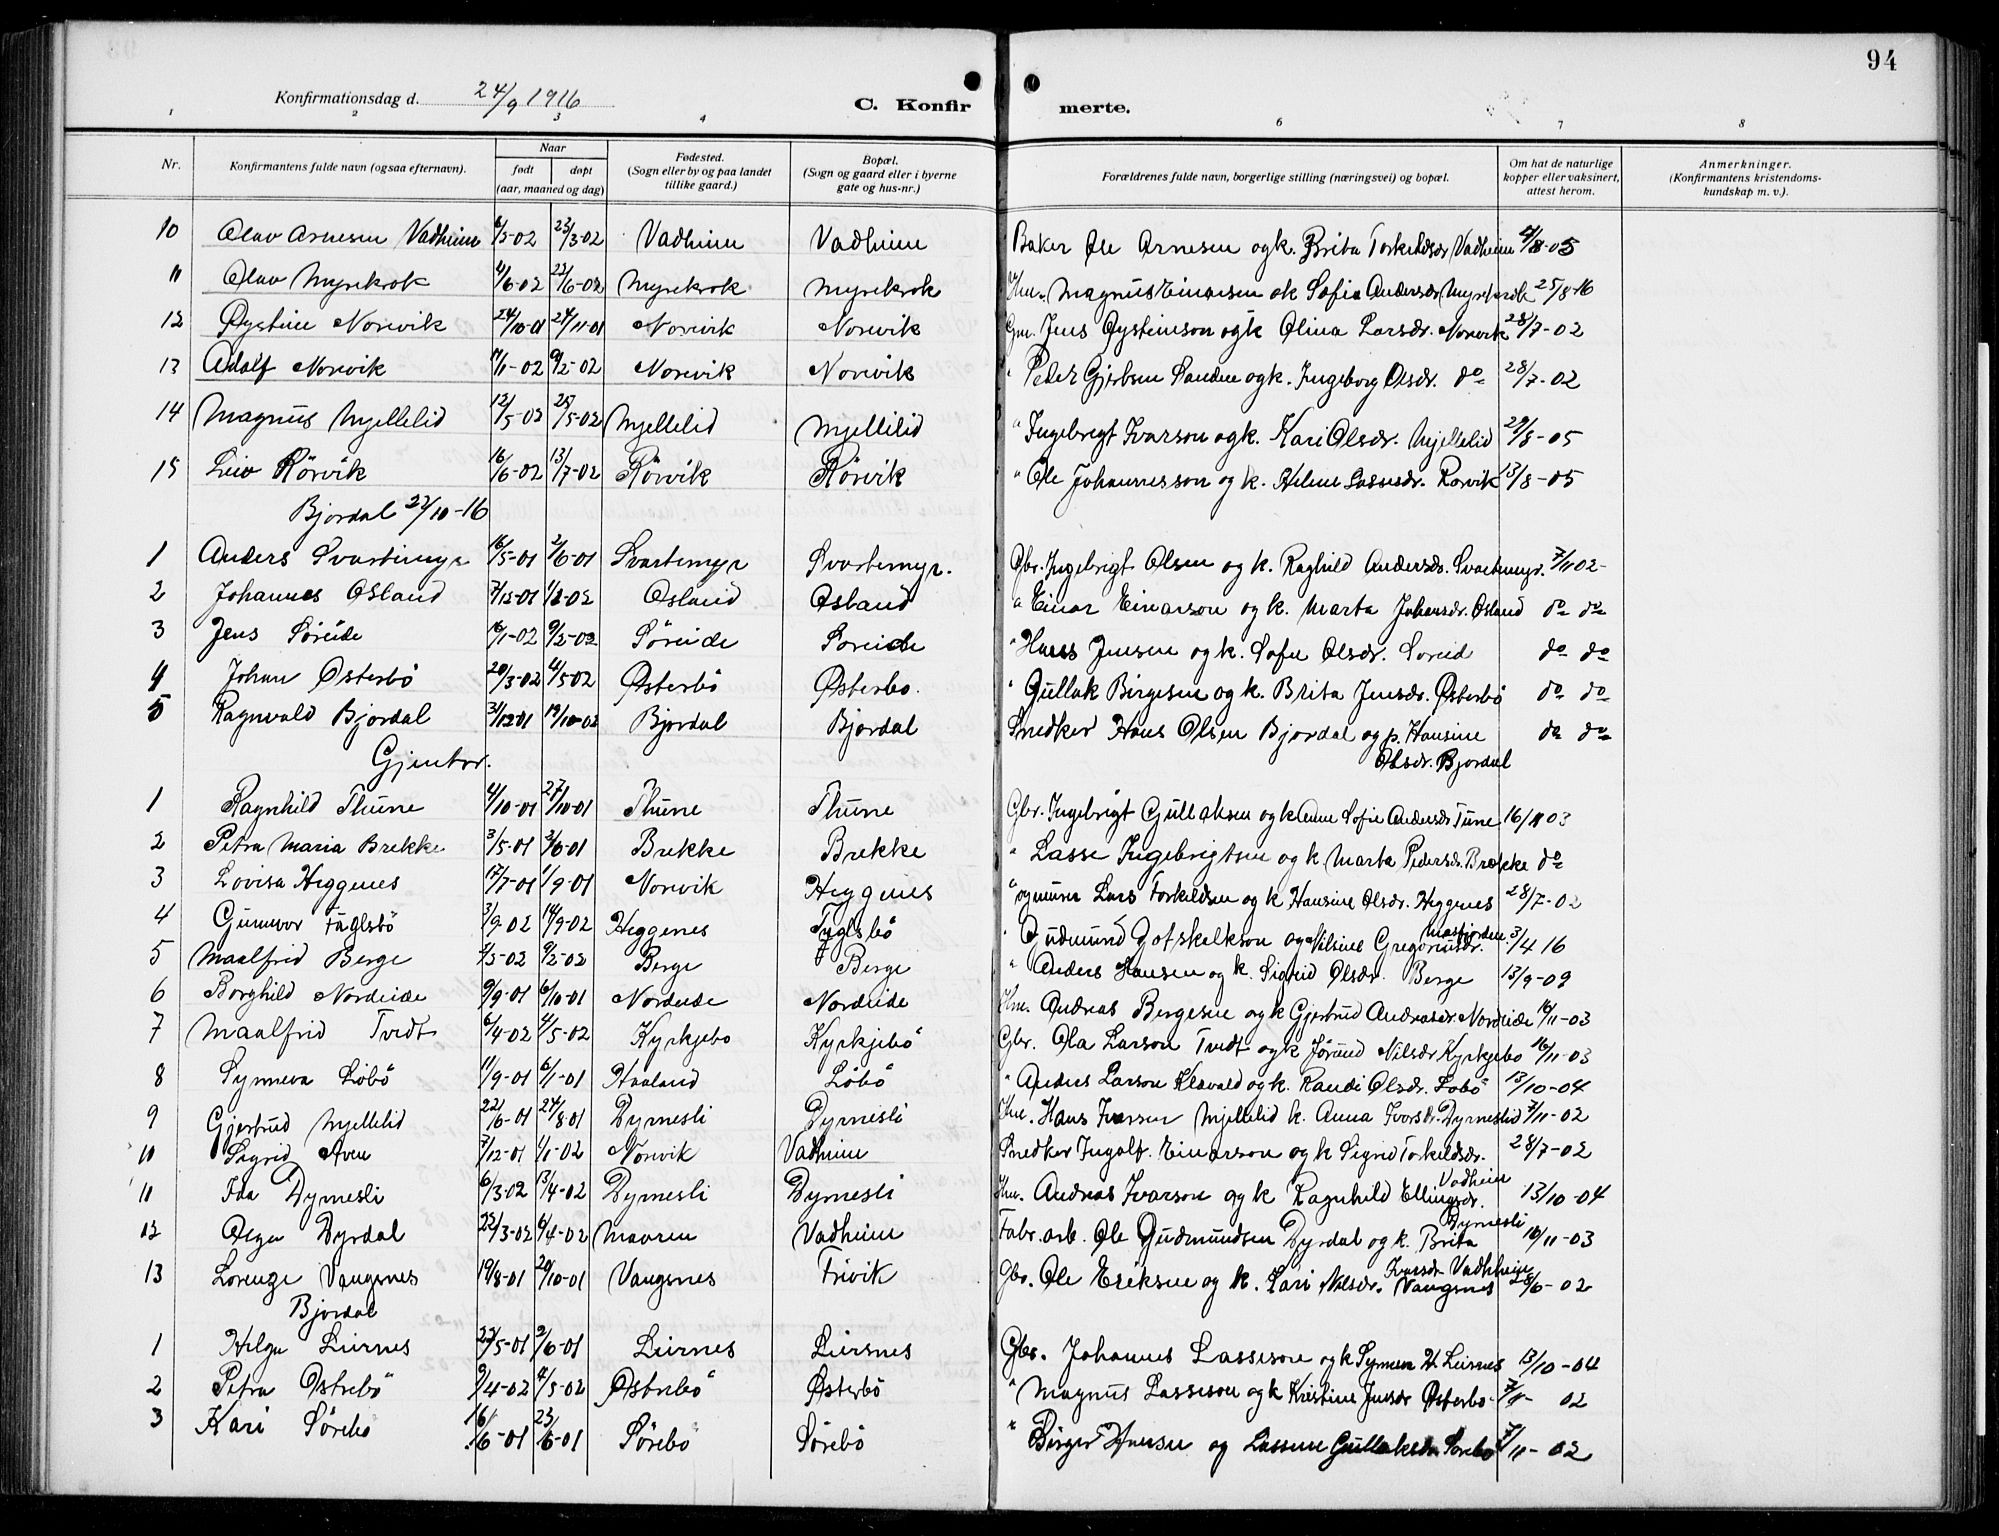 94
Konfirmationsdag d. 24/9 1916 C. Konfir merte.
1 2 3 4 6 7 8
Nr. Konfirmantens fulde navn (ogsaa efternavn). Naar født døpt (aar, maaned og dag) Fødested. (Sogn eller by og paa landet tillike gaard.) Bopæl. (Sogn og gaard eller i byerne gate og hus-nr.) Forældrenes fulde navn, borgerlige stilling (næringsvei) og bopæl. Om hat de naturlige kopper eller vaksinert, attest herom. Anmerkninger. (Konfirmantens kristendoms-kundskap m. v.).
10 Olav Arnesen Vadheim 6/3-02 23/3-02 Vadheim Vadheim Baker Ole Arnesen og k. Brita Torkeldsdr Vadheim 4/8-05
11 Olav Myrekrok 4/6-02 22/6-02 Myrekrok Myrekrok Hm. Magnus Einarsen ok Sofie Andersdr Myrekrok 25/8-16
12 Øystein Norevik 24/10-01 24/11-01 Norevik Norevik Gm. Jens Øysteinson og k Olina Larsdr. Norevik 28/7-02
13 Adolf Norevik 11/1-02 9/2-02 Norevik Norevik " Peder Gjertsen Sanden og k. Ingeborg Olsdr. do 28/7-02
14 Magnus Mjellelid 12/5-02 25/5-02 Mjellelid Mjellelid " Ingebrigt Ivarson og k. Kari Olsdr. Mjellelid 29/8-05
15 Leiv Rørvik 16/6-02 13/7-02 Rørvik Rørvik " Ole Johannesson og k. Helene Lassesdr. Rørvik 13/8-05
Bjordal 22/10-16
1 Anders Svartemyr 16/5-01 2/6-01 Svartemyr Svartemyr. Gbr. Ingebrigt Olsen og k. Raghild Andersdr. Svartemyr. 7/11 02-
2 Johannes Osland 7/12-01 1/2-02 Osland Osland " Einar Einarson og k. Marta Johansdr. Osland do do
3 Jens Søreide 16/1-02 9/2-02 Søreide Søreide " Hans Jensen og k. Sofie Olsdr. Søreid do do
4 Johan Østerbø 20/3-02 4/5-02 Østerbø Østerbø. " Gullak Birgesen og k. Brita Jensdr. Østerbø do do
5 Ragnvald Bjordal 31/12-01 19/10-02 Bjordal Bjordal Snedker Hans Olsen Bjordal og p. Hansine do do
Olsdr. Bjordal
Gjentor.
1 Ragnhild Thune 4/10-01 27/10-01 Thune Thune Gbr. Ingebrigt Gullaksen og k Anne Sofie Andersdr Tune 16/11 03
2 Petra Maria Brekke 3/5-01 2/6-01 Brekke Brekke " Lasse Ingebrigtsen og k Marta Pedersdr. Brekke do
3 Lovisa Heggenes 17/7-01 1/9-01 Norevik Heggenes Lars Torkildsen og k Hansine Olsdr. Heggenes 28/7-02
4 Gunnvor Fuglsbø 3/9-02 14/9-02 Heggenes Fuglsbø " Gudmund Gotskalkson og Nilsine Gregoriusdr. Masfjorden. 3/4 16
5 Maalfrid Berge 7/3-02 9/2-02 Berge Berge " Anders Hansen og k. Sigrid Olsdr. Berge 13/9-09
6 Borghild Nordeide 9/9-01 6/10-01 Nordeide Nordeide Hm. Andreas Bergesen og k Gjertrud Andreasdr. Nordeide 16/11-03
7 Maalfrid Tvedt 6/4-02 4/5-02 Kyrkjebø Kyrkjebø Gbr. Ola Larson Tvedt og k Jørund Nilsdr Kyrkjebø 16/11-03
8 Synneva Løbø 11/9-01 6/1-01 Haaland Løbø " Anders Larson Klævald og k. Randi Olsdr. Løbø 13/10-04
9 Gjertrud Mjellelid 22/6-01 24/8 01 Dyrnesli Dyrnesli Hm. Hans Iversen Mjellelid k. Anna Ivarsdr. Dyrneslid 7/11-02
10 Sigrid Aven 7/12-01 4/1-02 Norevik Vadheim Snedker Ingolf Einarson og k Sigrid Torkeldsdr. Vadheim 28/7-02
11 Ida Dyrnesli 6/3-02 13/4-02 Dyrnesli Dyrnesli Hm. Andreas Ivarson og k Ragnhild Ellingsdr. Dyrnesli 13/10-04
12 Olga Dyrdal 22/3-02 6/4-02 Maaren Vadheim Fabr. arb. Ole Gudmundsen Dyrdal og k. Brita Ivarsdr Vadheim 16/11-03
13 Lorense Vangsnes 19/8-01 20/10-01 Vangsnes Trivik Gbr. Ole Eriksen og k. Kari Nilsdr. Vangsnes 28/6-02
Bjordal
1 Helga Leirnes 27/5-01 9/6-01 Leirnes Leirsnes Gbr. Johannes Lassison og k Synneva H. Leirnes 13/10-04
2 Petra Østrebø 9/4-02 4/5-02 Østrebø Østerbø " Magnus Lasseson og k Kristine Jensdr Østerbø 7/11- 02
3 Kari Sørebø 16/6-01 23/6-01 Sørebø Sørebø " Birger Hansen og Lassine Gullaksdr. Sørebø 7/11-02